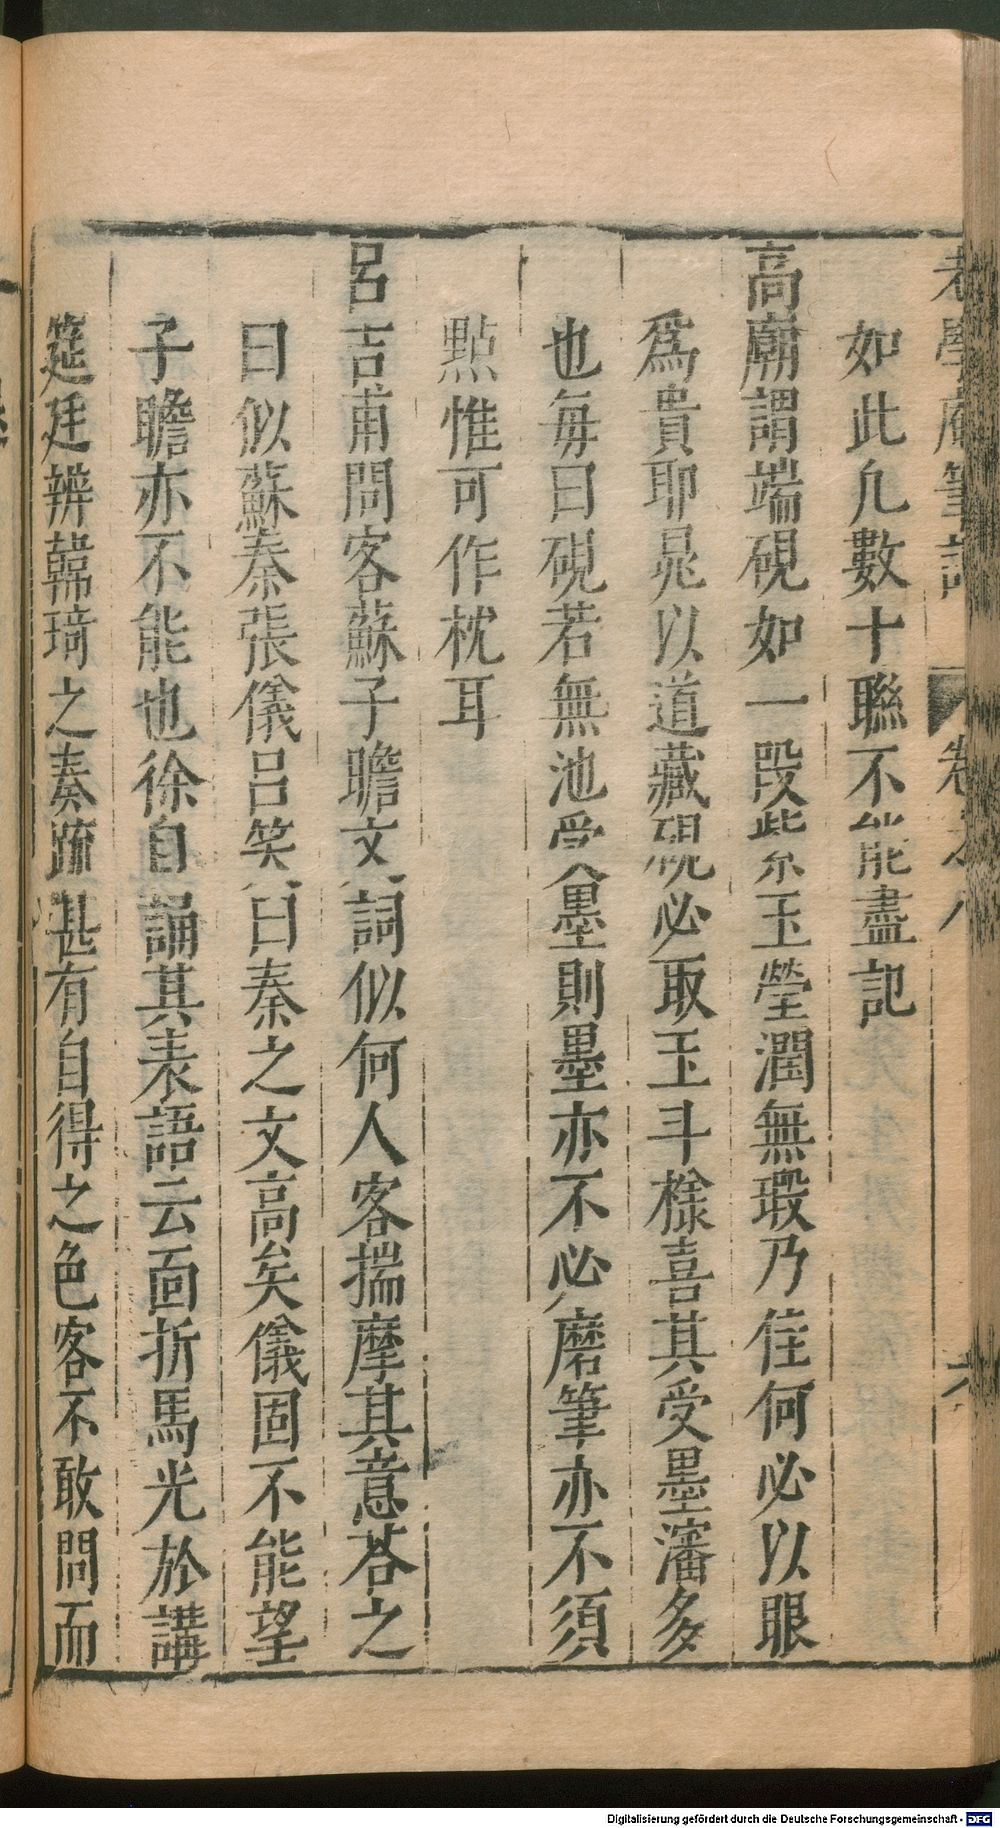 老學庵筆記 卷之八 六
如此凡數十聯不能盡記
高廟謂端硯如一段紫玉瑩潤無瑕乃佳何必以眼
爲貴耶晁以道藏硯必取玉斗樣喜其受墨瀋多
也每曰硯若無池受墨則墨亦不必磨筆亦不須
點惟可作枕耳
呂吉甫問客蘇子瞻文詞似何人客揣摩其意荅之
曰似蘇秦張儀呂笑曰秦之文高矣儀固不能望
子瞻亦不能也徐自誦其表語云面折馬光於講
筵廷辨韓琦之奏疏甚有自得之色客不敢問而
Digitalisierung gefördert durch die Deutsche Forschungsgemeinschaft - DFG